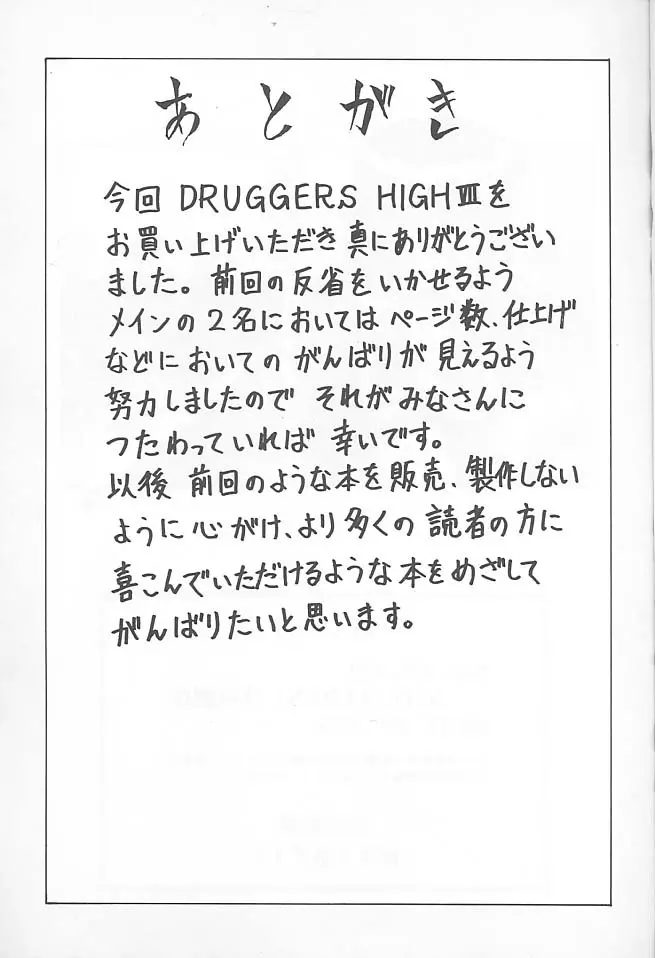 あとがき
今回 DRUGGERS HIGH Ⅲを
お買い上げいただき 真にありがとうござい
ました。前回の反省をいかせるよう
メインの2名においては ページ数、仕上げ
などにおいての がんばりが 見えるよう
努力しましたので それが みなさんに
つたわっていれば 幸いです。
以後 前回のような本を販売、製作しない
ように心がけ、より多くの 読者の方に
喜こんでいただけるような本をめざして
がんばりたいと思います。